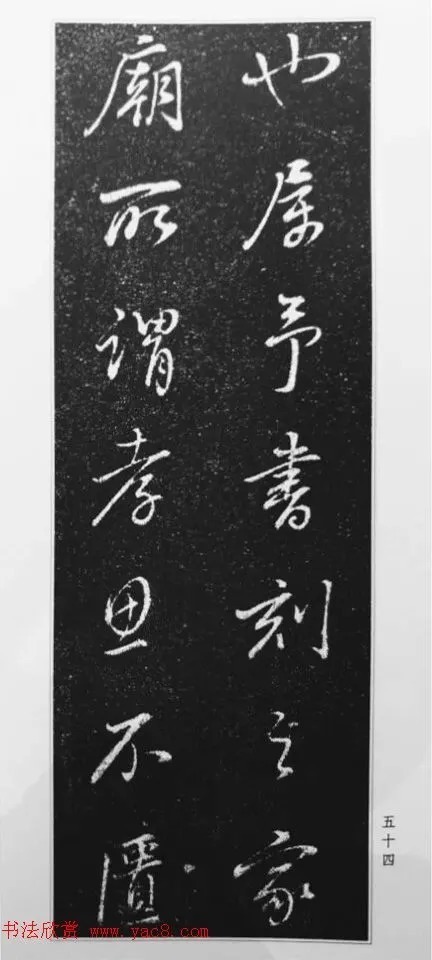 也属予书刻之家
庙所谓孝思不匮
五十四
书法欣赏 www.yac8.com